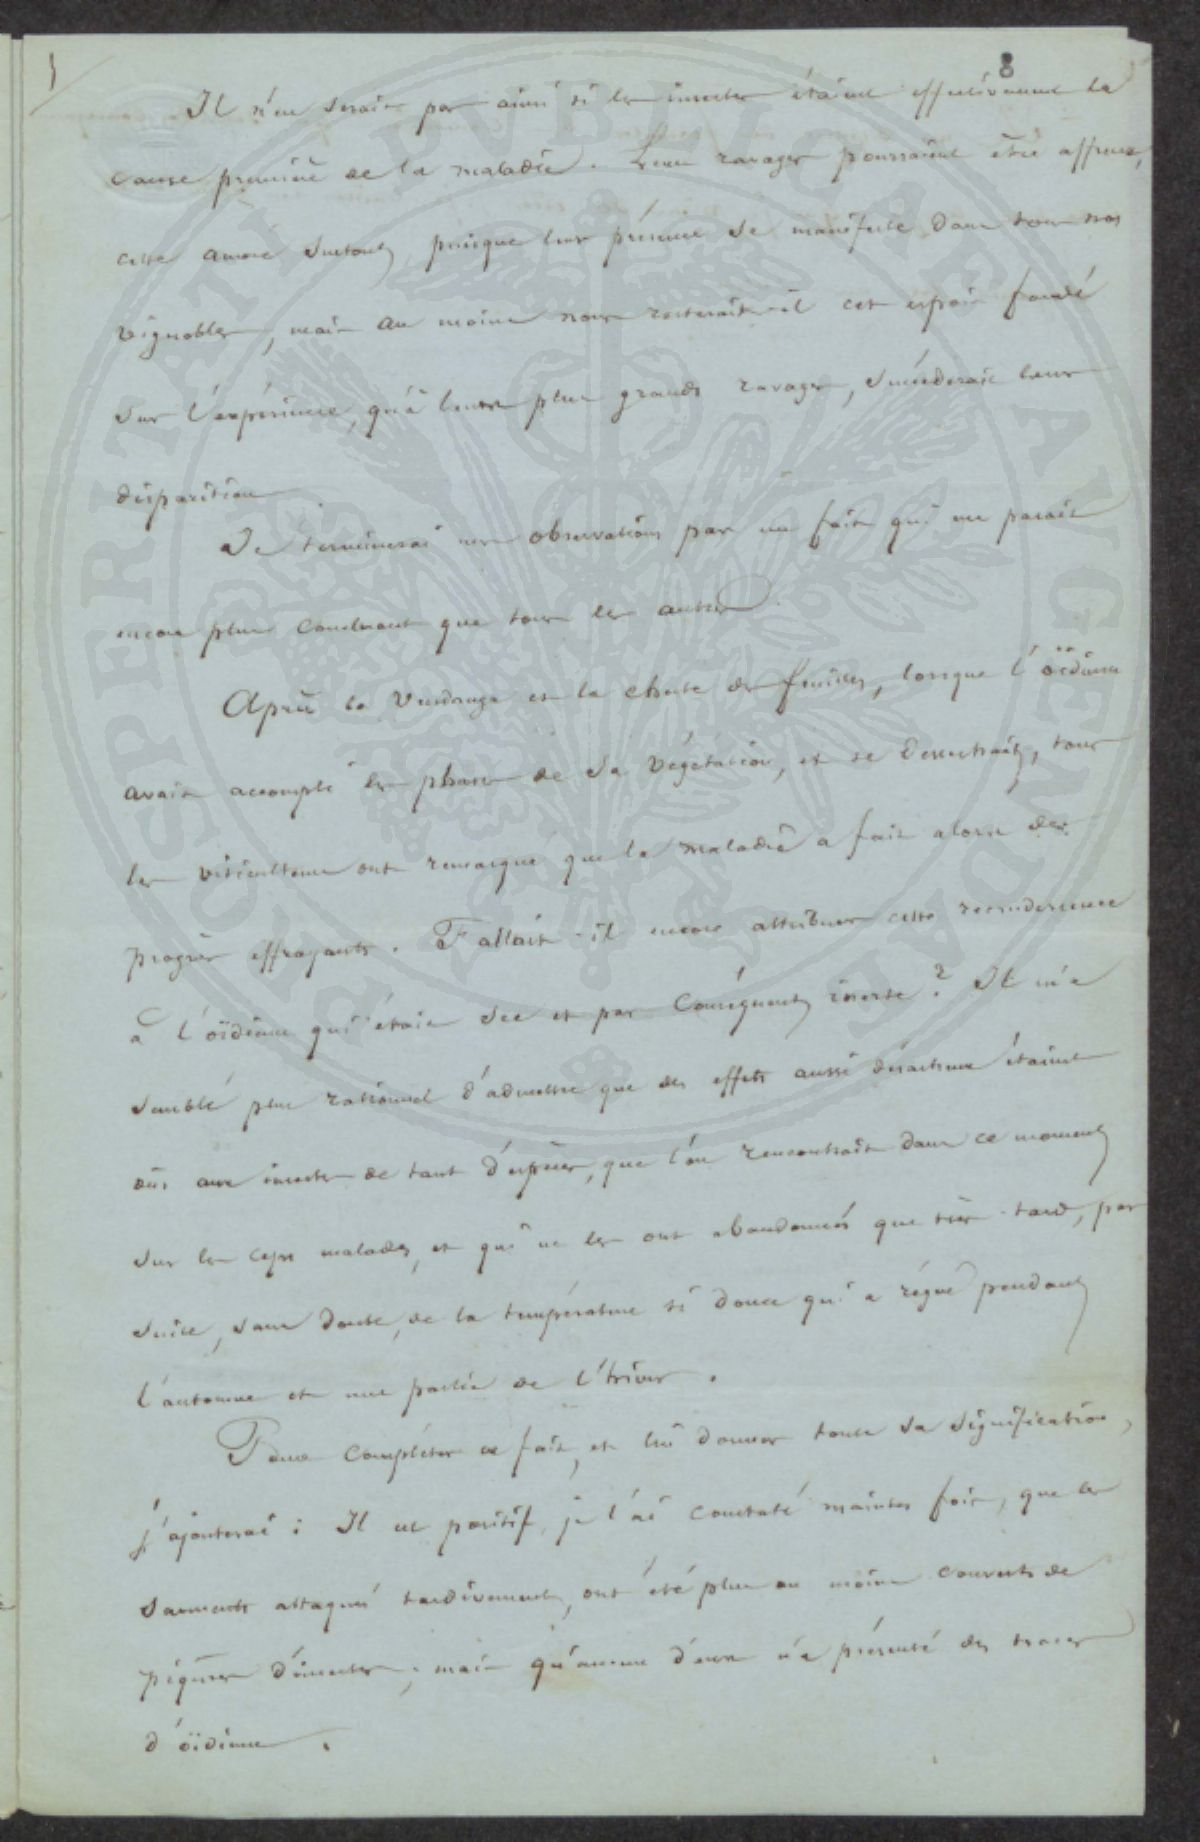 8
Il n'en serait pas ainsi si les insectes étaient effectivement la
cause première de la maladie. Leurs ravages pourraient être affreux,
cette année surtout, puisque leur présence se manifeste dans tous nos
vignobles, mais au moins nous resterait-il cet espoir fondé
sur l'expérience, qu'à leurs plus grands ravages, succéderait leur
disparition
Je terminerai mes observations par un fait qui me parait
encore plus concluant que tous les autres.
Après la vendange et la chute des feuilles, lorsque l'oïdium
avait accompli les phases de sa végétation, et se desséchait, tous
les viticulteurs ont remarqué que la maladie a fait alors des
progrès effrayants. Fallait-il encore attribuer cette recrudescence
à l'oïdium qui était sec et par conséquent inerte? Il m'a
semblé plus rationnel d'admettre que des effets aussi désastreux étaient
dûs aux insectes de tant d'espèces, que l'on rencontrait dans ce moment
sur les ceps malades, et qui ne les ont abandonnés que très-tard, par
suite, sans doute, de la température si douce qui a régné pendant
l'automne et une partie de l'hiver.
Pour compléter ce fait, et lui donner toute sa signification,
j'ajouterai : Il est positif, je l'ai constaté maintes fois, que les
sarments attaqués tardivement, ont été plus ou moins couverts de
piqûres d'insectes; mais qu'aucun d'eux n'a présenté des traces
d'oïdium.
PROSPERITATI PVBLICAE AVGENDAE